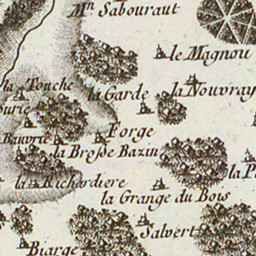 Mⁿ Sabouraut
le Magnou
la Touche
la Garde
la Nouvray
urie
Forge
Bauvrie
la Brosse Bazin
la Richardiere
la P
la Grange du Bois
Salvert
Biarge